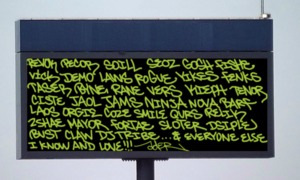 REVOK RECOR SOILL SEOZ GOSH FISHE
VICK DEMO LAWS ROGUE YIKES FENKS
TASER BYNE RANE VERS KIEPH TENOR
CISTE JAOL JAMS NINJA NOVA BARF
LAOS ORGIE COZE SMILE QURS RELIK
2SHAE MAYOR FORTAE SLOTER DSIPLE)
(BUST CLAW DJ TRIBE....& EVERYONE ELSE
I KNOW AND LOVE!!!